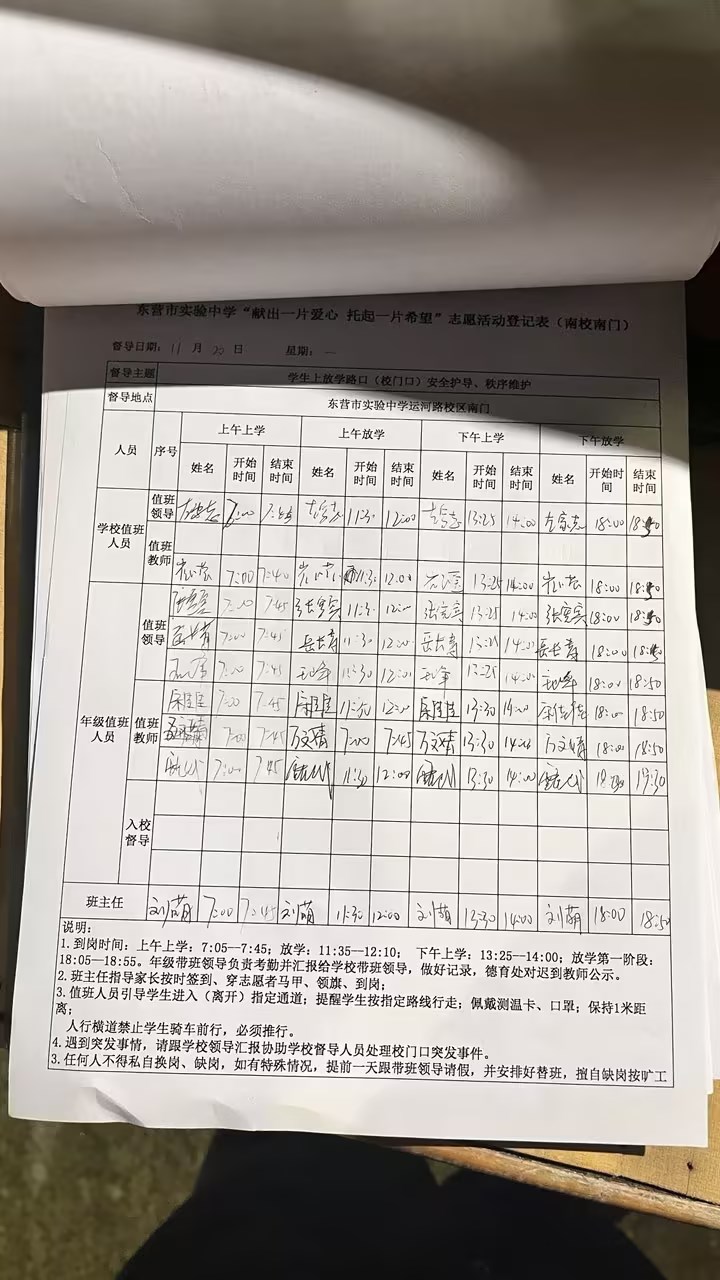 东营市实验中学“献出一片爱心 托起一片希望”志愿活动登记表（南校南门）
督导日期：11 月 20 日 星期：一
督导主题 学生上放学路口（校门口）安全护导、秩序维护
督导地点 东营市实验中学运河路校区南门
人员 序号 上午上学 上午放学 下午上学 下午放学
姓名 开始时间 结束时间 姓名 开始时间 结束时间 姓名 开始时间 结束时间 姓名 开始时间 结束时间
学校值班人员 值班领导 7:00 7:45 11:30 12:00 13:25 14:00 18:00 18:50
值班教师
7:00 7:40 11:30 12:00 13:25 14:00 18:00 18:50
年级值班人员 值班领导 7:00 7:45 11:3 12:00 13:25 14:00 18:00 18:50
7:00 7:45 岳长青 11:30 12:00 岳长青 13:25 14:00 岳长青 18:00 18:50
7:00 7:45 11:30 12:00 13:25 14:00 18:00 18:50
值班教师 7:00 7:45 11:30 12:00 13:30 14:00 18:00 18:50
7:00 7:45 方文婧 7:00 7:45 方文婧 13:30 14:00 方文婧 18:00 18:50
7:00 7:45 11:30 12:00 13:30 14:00 19:30
入校督导
班主任 刘萌 7:00 7:45 刘萌 11:30 12:00 刘萌 13:30 14:00 刘萌 18:00 18:50
说明：
1. 到岗时间：上午上学：7:05--7:45；放学：11:35--12:10； 下午上学：13:25--14:00；放学第一阶段：
18:05--18:55。年级带班领导负责考勤并汇报给学校带班领导，做好记录，德育处对迟到教师公示。
2. 班主任指导家长按时签到、穿志愿者马甲、领旗、到岗；
3. 值班人员引导学生进入（离开）指定通道；提醒学生按指定路线行走；佩戴测温卡、口罩；保持1米距
离；
人行横道禁止学生骑车前行，必须推行。
4. 遇到突发事情，请跟学校领导汇报协助学校督导人员处理校门口突发事件。
3. 任何人不得私自换岗、缺岗，如有特殊情况，提前一天跟带班领导请假，并安排好替班，擅自缺岗按旷工